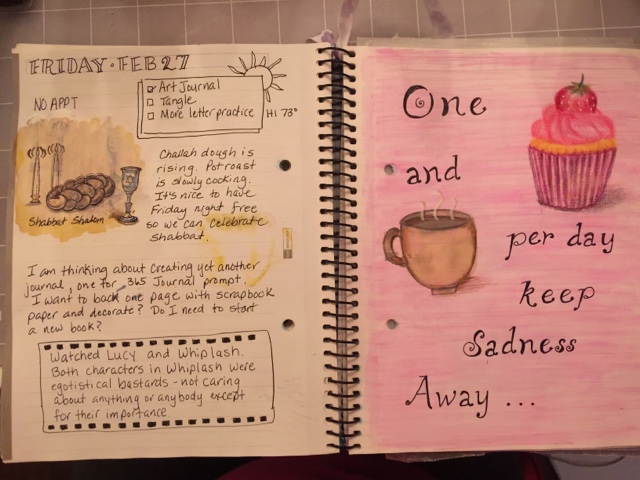 FRIDAY · FEB 27
NO APPT
Art Journal
Tangle
More letter practice
Hi 73°
Challah dough is
rising. Pot roast
is slowly cooking.
It's nice to have
Friday night free
so we can celebrate
Shabbat.
Shabbat Shalom
I am thinking about creating yet another
journal, one for 365 Journal prompt.
I want to back one page with scrapbook
paper and decorate? Do I need to start
a new book?
Watched Lucy and Whiplash.
Both characters in Whiplash were
egotistical bastards - not caring
about anything or anybody except
for their importance.
One
and
per day
keep
Sadness
Away ...